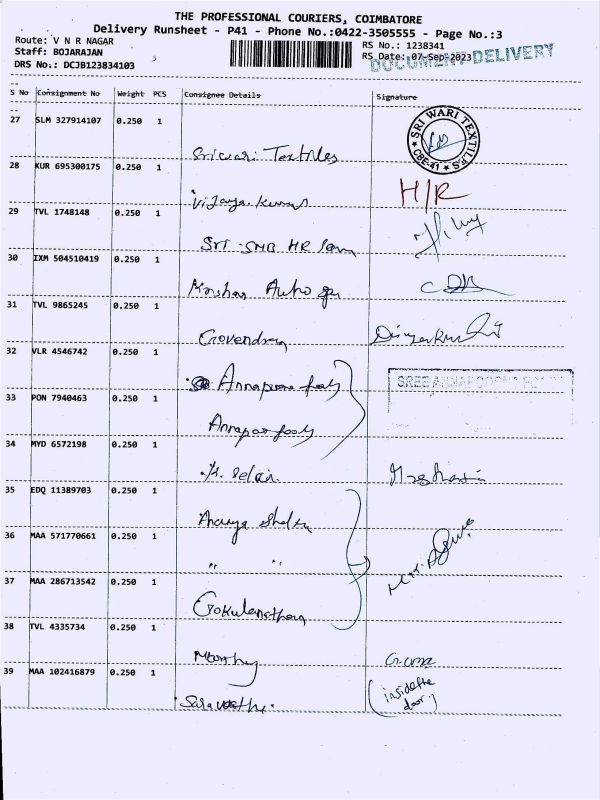 THE PROFESSIONAL COURIERS, COIMBATORE
Delivery Runsheet - P41 - Phone No.:0422-3505555 - Page No.:3
Route: V N R NAGAR
RS No.: 1238341
Staff: BOJARAJAN
RS Date: 07-Sep-2023
DOCUMENT DELIVERY
DRS No.: DCJB123834103
S No Consignment No Weight PCS Consignee Details Signature
27 SLM 327914107 0.250 1
SRI WARI TEXTILES
CBE-41
Sriwari Textiles
28 KUR 695300175 0.250 1
Vijaya kumar
H/R
29 TVL 1748148 0.250 1
Sri SMB HR
30 IXM 504510419 0.250 1
Krishna Auto
31 TVL 9865245 0.250 1
Govendran
32 VLR 4546742 0.250 1
Annapoorna foods
33 PON 7940463 0.250 1
Annapoor foods
34 MYD 6572198 0.250 1
K. Selvi
35 EDQ 11389703 0.250 1
36 MAA 571770661 0.250 1
" "
37 MAA 286713542 0.250 1
Gokulanathan
38 TVL 4335734 0.250 1
39 MAA 102416879 0.250 1
(inside the
door)